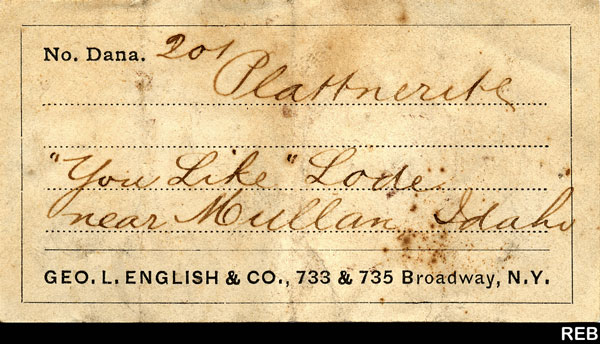 No. Dana. 201
Plattnerite
"You Like" Lode
near Mullan Idaho
GEO. L. ENGLISH & CO., 733 & 735 Broadway, N.Y.
REB